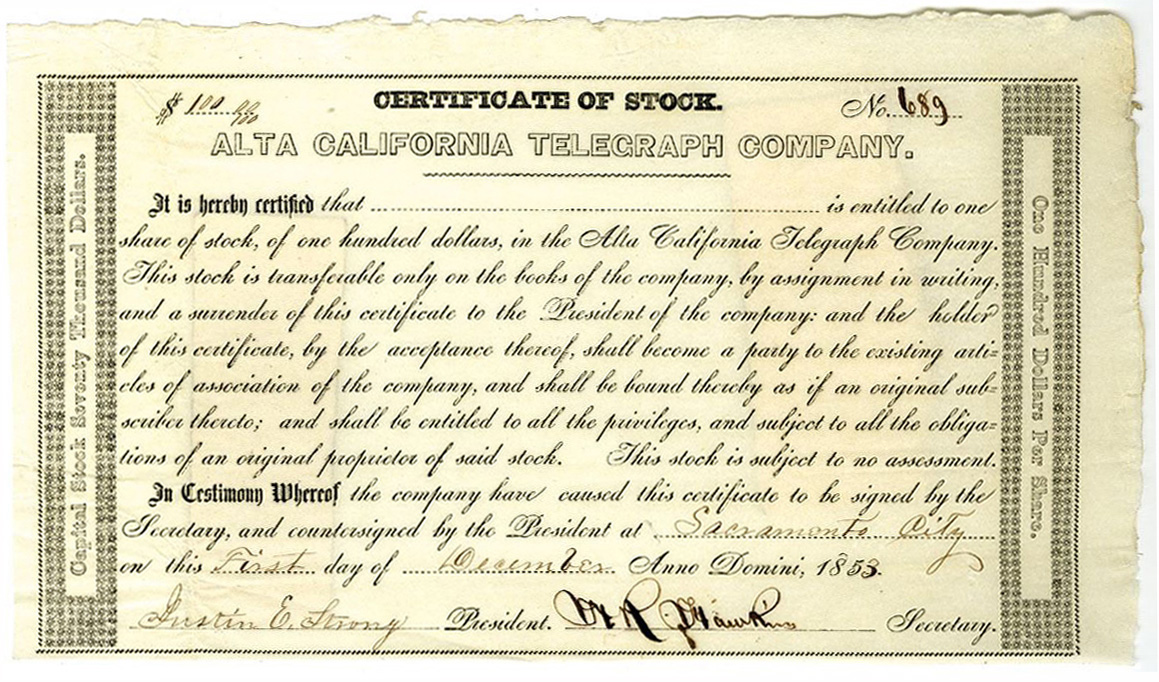 $ 100 00/100 CERTIFICATE OF STOCK. No. 689
ALTA CALIFORNIA TELEGRAPH COMPANY.
It is hereby certified that is entitled to one
share of stock, of one hundred dollars, in the Alta California Telegraph Company.
This stock is transferable only on the books of the company, by assignment in writing,
and a surrender of this certificate to the President of the company: and the holder
of this certificate, by the acceptance thereof, shall become a party to the existing arti-
cles of association of the company, and shall be bound thereby as if an original sub-
scriber thereto; and shall be entitled to all the privileges, and subject to all the obliga-
tions of an original proprietor of said stock. This stock is subject to no assessment.
In Testimony Whereof the company have caused this certificate to be signed by the
Secretary, and countersigned by the President at Sacramento City
on this First day of December Anno Domini, 1853.
Justin E. Strong President. Secretary.
Capital Stock Seventy Thousand Dollars.
One Hundred Dollars Per Share.